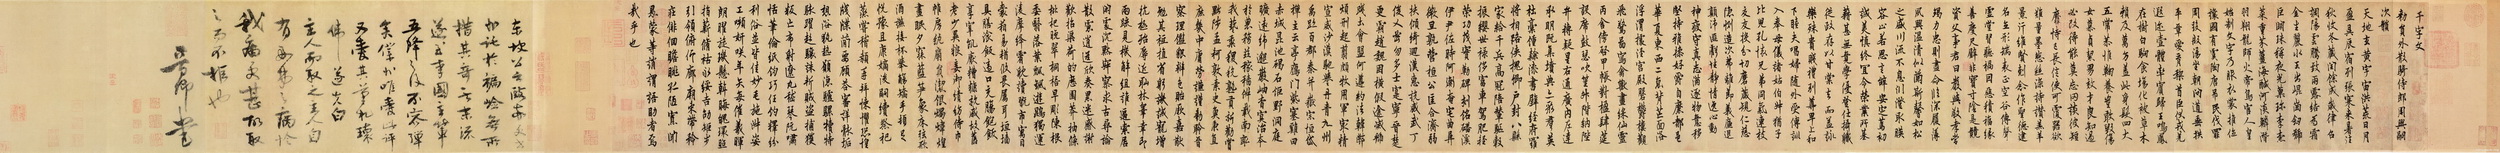 千字文
勅員外散騎侍郎周興嗣
次韻
天地玄黃宇宙洪荒日月
盈昃辰宿列張寒來暑往
秋收冬藏閏餘成歲律呂
調陽雲騰致雨露結為霜
金生麗水玉出崐崗劒號
巨闕珠稱夜光菓珍李柰
菜重芥薑海鹹河淡鱗潛
羽翔龍師火帝鳥官人皇
始制文字乃服衣裳推位
讓國有虞陶唐弔民伐罪
周發殷湯坐朝問道垂拱
平章愛育黎首臣伏戎羌
遐迩壹體率賓歸王鳴鳳
在樹白駒食場化被草木
賴及萬方蓋此身髮四大
五常恭惟鞠養豈敢毀傷
女慕貞絜男效才良知過
必改得能莫忘罔談彼短
靡恃己長信使可覆器欲
難量墨悲絲染詩讚羔羊
景行維賢剋念作聖德建
名立形端表正空谷傳聲
虛堂習聽禍因惡積福緣
善慶尺璧非寶寸陰是競
資父事君曰嚴與敬孝當
竭力忠則盡命臨深履薄
夙興溫凊似蘭斯馨如松
之盛川流不息淵澄取暎
容止若思言辭安定篤初
誠美慎終宜令榮業所基
藉甚無竟學優登仕攝職
從政存以甘棠去而益詠
樂殊貴賤禮別尊卑上和
下睦夫唱婦隨外受傅訓
入奉母儀諸姑伯叔猶子
比兒孔懷兄弟同氣連枝
交友投分切磨箴規仁慈
隱惻造次弗離節義廉退
顛沛匪虧性靜情逸心動
神疲守真志滿逐物意移
堅持雅操好爵自縻都邑
華夏東西二京背芒面洛
浮渭據涇宮殿盤鬱樓觀
飛驚圖寫禽獸畫綵仙靈
丙舍傍啓甲帳對楹肆筵
設席鼓瑟吹笙升階納陛
弁轉疑星右通廣內左達
承明既集墳典亦聚羣英
杜稾鍾隸漆書壁經府羅
將相路俠槐卿戶封八縣
家給千兵高冠陪輦驅轂
振纓世祿侈富車駕肥輕
策功茂實勒碑刻銘磻溪
伊尹佐時阿衡奄宅曲阜
微旦孰營桓公匡合濟弱
扶傾綺迴漢惠說感武丁
俊乂密勿多士寔寧晉楚
更霸趙魏困橫假途滅虢
踐土會盟何遵約法韓弊
煩刑起翦頗牧用軍最精
宣威沙漠馳譽丹青九州
禹跡百郡秦并嶽宗恆岱
禪主云亭雁門紫塞雞田
赤城昆池碣石鉅野洞庭
曠遠綿邈巖岫杳冥治本
於農務茲稼穡俶載南畝
我藝黍稷稅熟貢新勸賞
黜陟孟軻敦素史魚秉直
庶幾中庸勞謙謹勅聆音
察理鑒貌辨色貽厥嘉猷
勉其祗植省躬譏誡寵增
抗極殆辱近恥林皋幸即
兩疏見機解組誰逼索居
閑處沈默寂寥求古尋論
散慮逍遙欣奏累遣慼謝
歡招渠荷的歷園莽抽條
枇杷晚翠梧桐早凋陳根
委翳落葉飄颻遊鵾獨運
凌摩絳霄耽讀翫市寓目
囊箱易輶攸畏屬耳垣牆
具膳飡飯適口充腸飽飫
享宰飢厭糟糠親戚故舊
老少異糧妾御績紡侍巾
帷房紈扇圓潔銀燭煒煌
晝眠夕寐藍筍象床弦歌
酒讌接杯舉觴矯手頓足
悅豫且康嫡後嗣續祭祀
蒸嘗稽顙再拜悚懼恐惶
牋牒簡要顧答審詳骸垢
想浴執熱願涼驢騾犢特
駭躍超驤誅斬賊盜捕獲
叛亡布射遼丸嵇琴阮嘯
恬筆倫紙鈞巧任釣釋紛
利俗並皆佳妙毛施淑姿
工嚬妍咲年矢每催羲暉
朗曜璇璣懸斡晦魄環照
指薪脩祜永綏吉劭矩步
引領俯仰廊廟束帶矜
莊徘徊瞻眺孤陋寡聞
愚蒙等誚謂語助者焉
哉乎也
東坡公言
主人而取之
而不